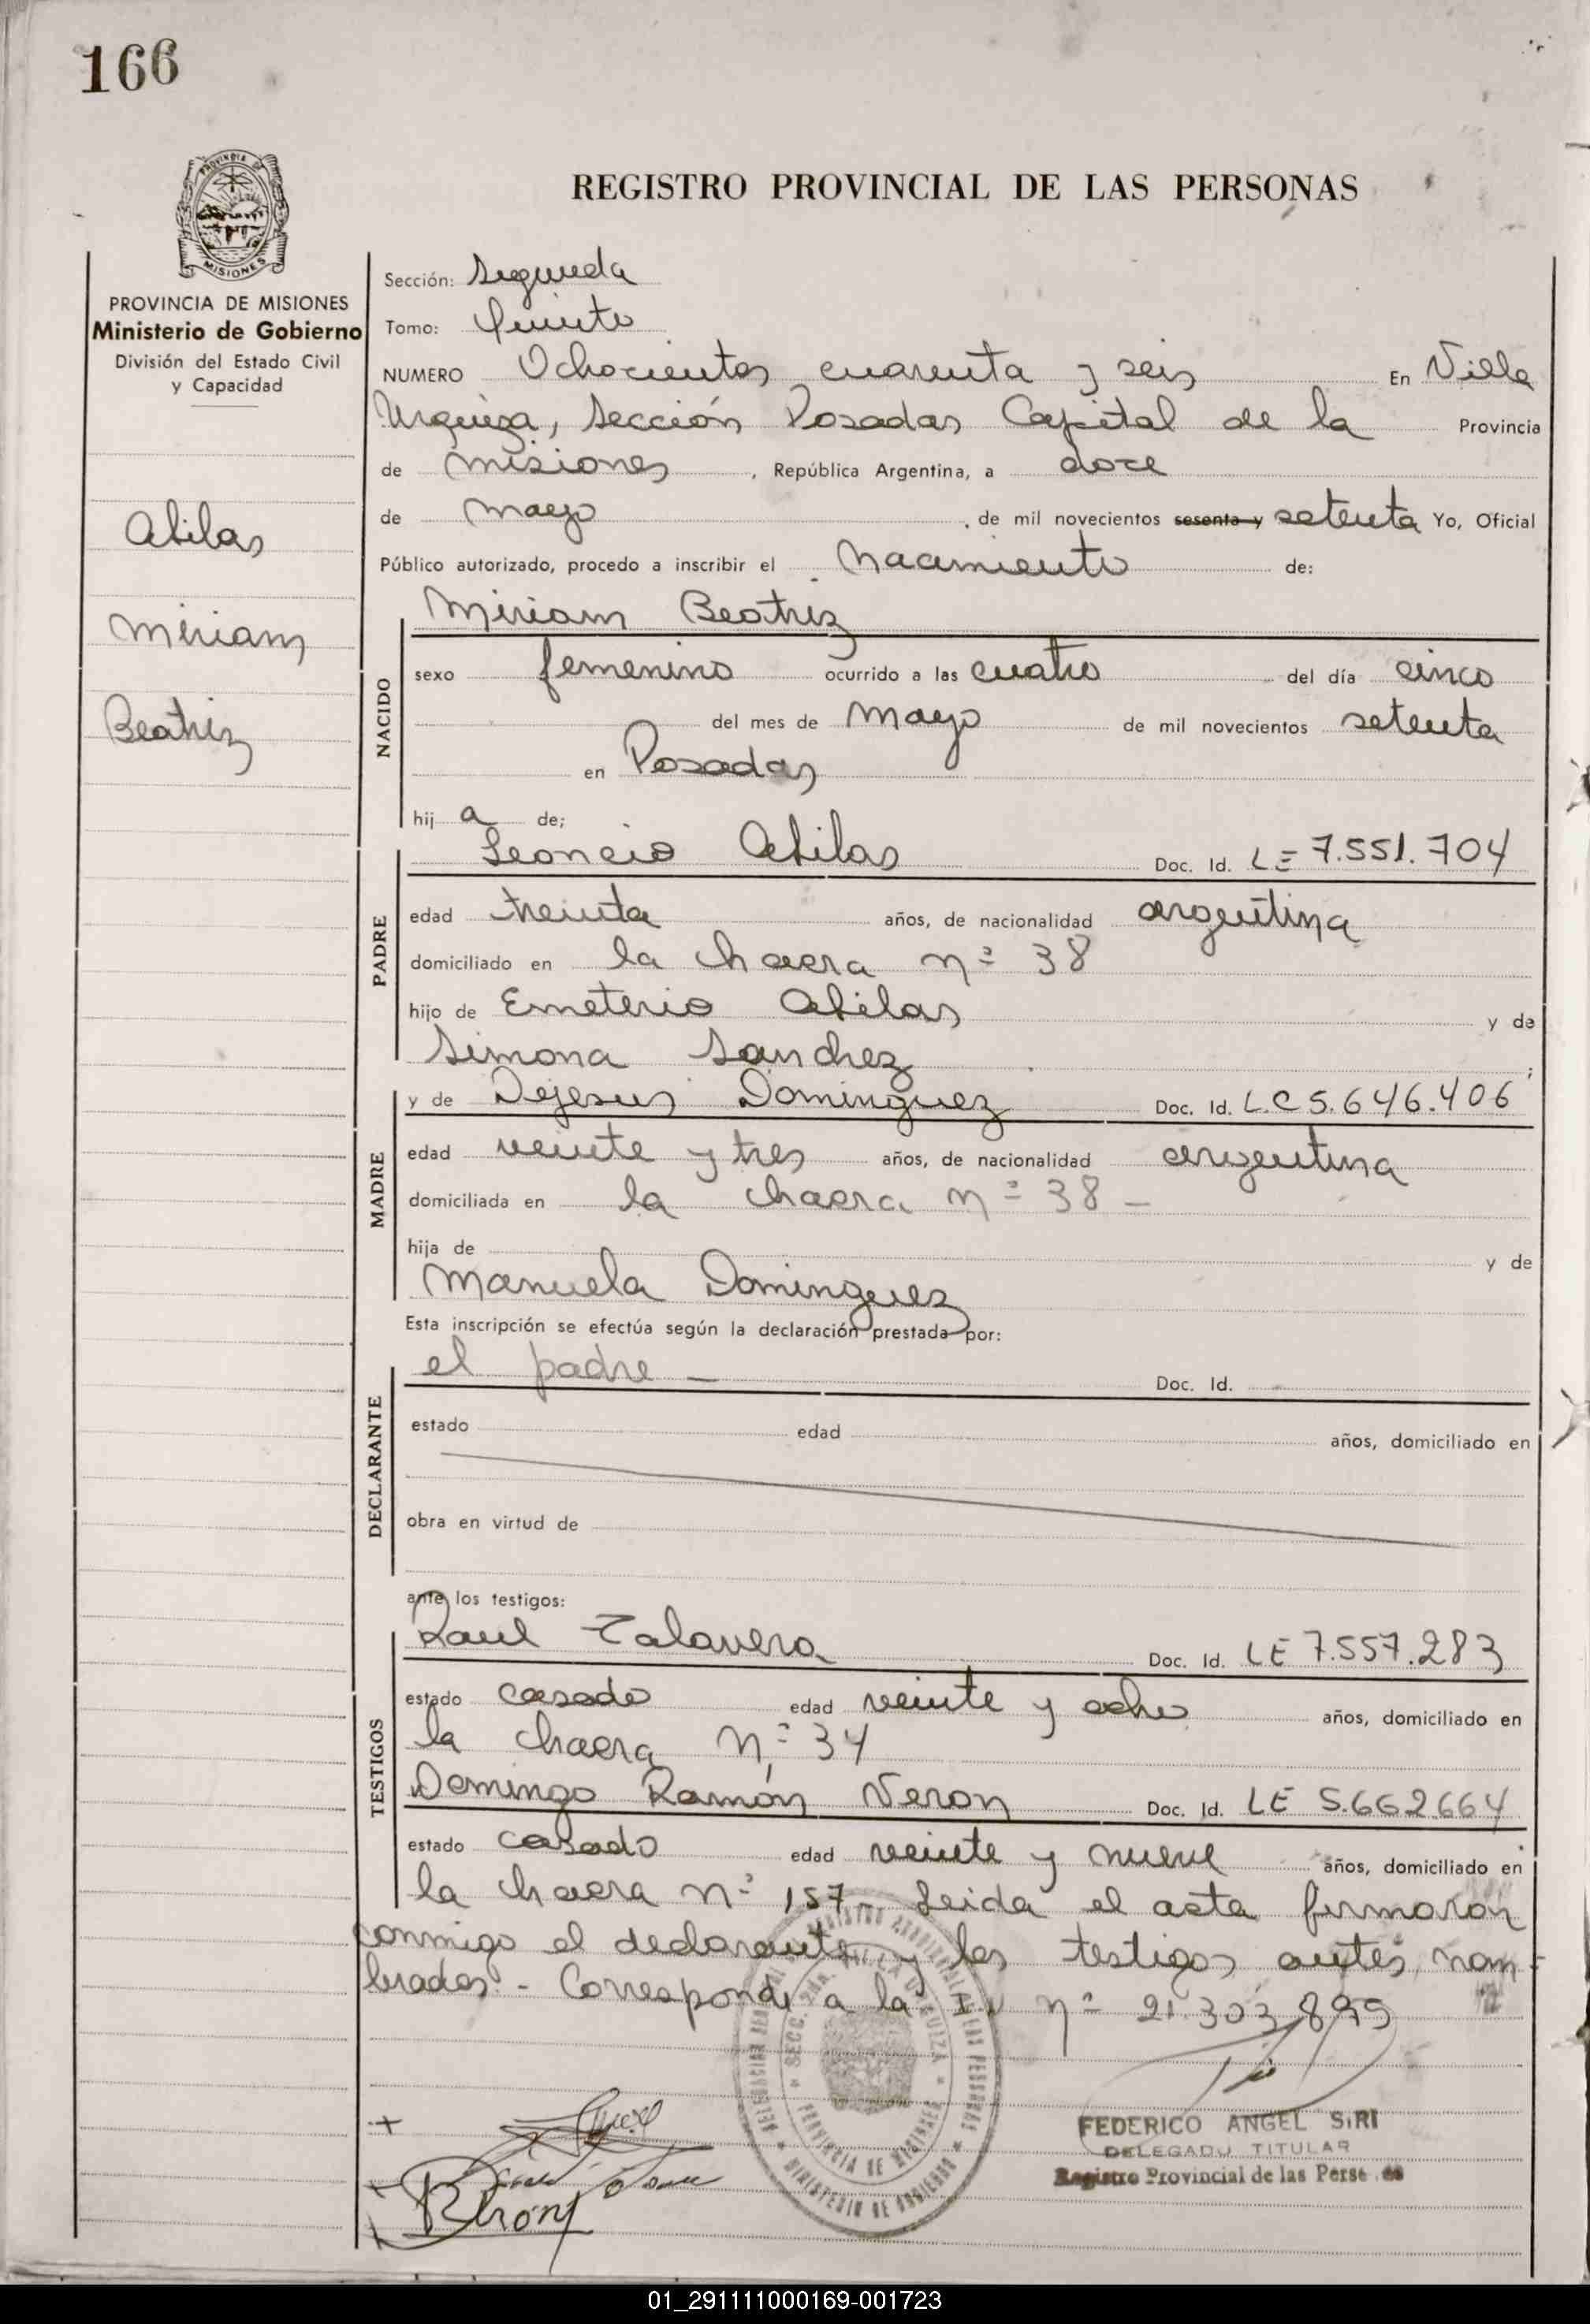 166
REGISTRO PROVINCIAL DE LAS PERSONAS
PROVINCIA DE
MISIONES
PROVINCIA DE MISIONES
Ministerio de Gobierno
División del Estado Civil
y Capacidad
Atilas
Miriam
Beatriz
Sección: Segunda
Tomo: Quinto
NUMERO Ochocientos cuarenta y seis En Villa
Urquiza, Sección Posadas Capital de la Provincia
de Misiones, República Argentina, a doce
de mayo, de mil novecientos sesenta y setenta Yo, Oficial
Público autorizado, procedo a inscribir el Nacimiento de:
Miriam Beatriz
NACIDO
sexo femenino ocurrido a las cuatro del día cinco
del mes de Mayo de mil novecientos setenta
en Posadas
hij a de;
PADRE
Leoncio Atilas Doc. Id. LE 7.551.704
edad treinta años, de nacionalidad argentina
domiciliado en la chacra nº 38
hijo de Emeterio Atilas y de
Simona Sanchez ;
MADRE
y de Dejesus Dominguez Doc. Id. L.C 5.646.406
edad veinte y tres años, de nacionalidad argentina
domiciliada en la chacra nº 38 —
hija de y de
Manuela Dominguez
Esta inscripción se efectúa según la declaración prestada por:
DECLARANTE
el padre — Doc. Id.
estado edad años, domiciliado en
obra en virtud de
ante los testigos:
TESTIGOS
Raul Talavera Doc. Id. LE 7.557.283
estado casado edad veinte y ocho años, domiciliado en
la chacra Nº 34
Domingo Ramón Veron Doc. Id. LE 5.662.664
estado casado edad veinte y nueve años, domiciliado en
la chacra nº 157 — Leida el acta firmaron
conmigo el declarante y los testigos antes nom-
brados. - Corresponde a la nº 21.303.899
SECC. 2DA. VILLA URQUIZA
PROVINCIA DE MISIONES
MINISTERIO DE GOBIERNO
FEDERICO ANGEL SIRI
DELEGADO TITULAR
Registro Provincial de las Perso as
01_291111000169-001723